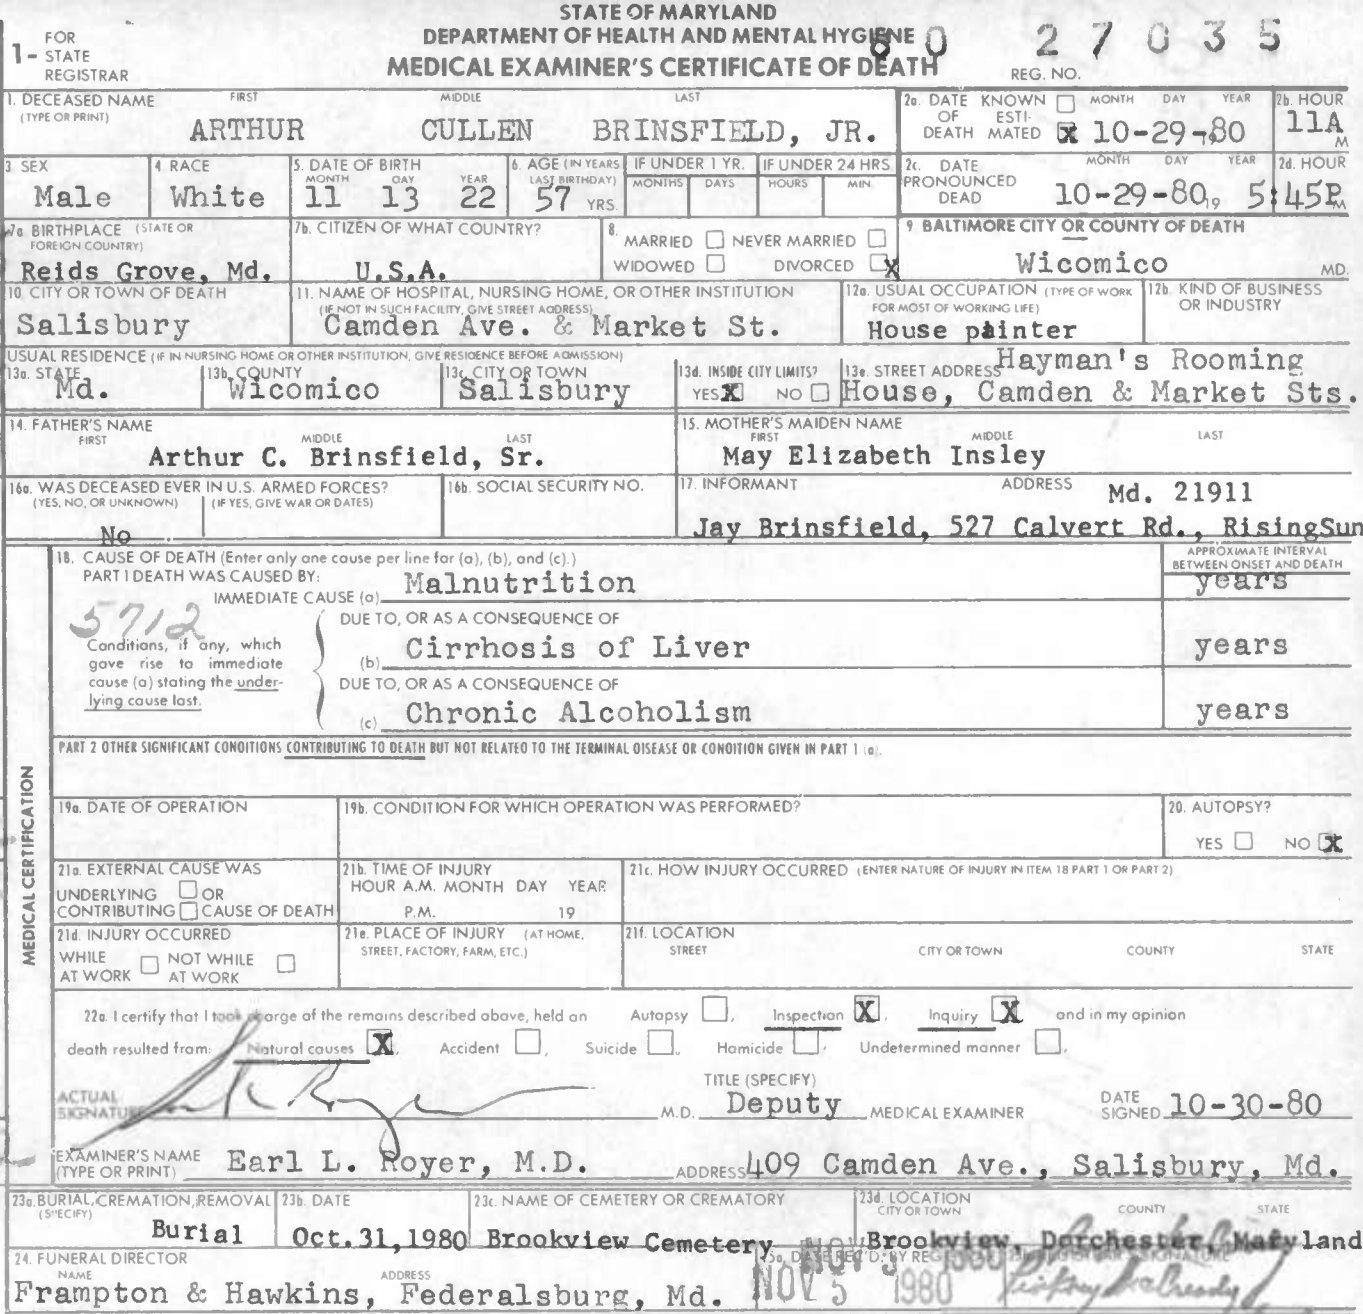 STATE OF MARYLAND
DEPARTMENT OF HEALTH AND MENTAL HYGIENE
MEDICAL EXAMINER'S CERTIFICATE OF DEATH
1- FOR STATE REGISTRAR
80 27035
REG. NO.
1. DECEASED NAME (TYPE OR PRINT) FIRST MIDDLE LAST
ARTHUR CULLEN BRINSFIELD, JR.
2a. DATE OF DEATH KNOWN ☐ ESTIMATED ☒ MONTH DAY YEAR
10-29-80
2b. HOUR
11A M
3. SEX
Male
4. RACE
White
5. DATE OF BIRTH MONTH DAY YEAR
11 13 22
6. AGE (IN YEARS LAST BIRTHDAY)
57 YRS.
IF UNDER 1 YR. MONTHS DAYS
IF UNDER 24 HRS HOURS MIN.
2c. DATE PRONOUNCED DEAD MONTH DAY YEAR
10-29-80, 19
2d. HOUR
5:45P M
7a. BIRTHPLACE (STATE OR FOREIGN COUNTRY)
Reids Grove, Md.
7b. CITIZEN OF WHAT COUNTRY?
U.S.A.
8. MARRIED ☐ NEVER MARRIED ☐
WIDOWED ☐ DIVORCED ☒
9. BALTIMORE CITY OR COUNTY OF DEATH
Wicomico MD.
10. CITY OR TOWN OF DEATH
Salisbury
11. NAME OF HOSPITAL, NURSING HOME, OR OTHER INSTITUTION
(IF NOT IN SUCH FACILITY, GIVE STREET ADDRESS)
Camden Ave. & Market St.
12a. USUAL OCCUPATION (TYPE OF WORK FOR MOST OF WORKING LIFE)
House painter
12b. KIND OF BUSINESS OR INDUSTRY
USUAL RESIDENCE (IF IN NURSING HOME OR OTHER INSTITUTION, GIVE RESIDENCE BEFORE ADMISSION)
13a. STATE
Md.
13b. COUNTY
Wicomico
13c. CITY OR TOWN
Salisbury
13d. INSIDE CITY LIMITS?
YES ☒ NO ☐
13e. STREET ADDRESS
Hayman's Rooming
House, Camden & Market Sts.
14. FATHER'S NAME FIRST MIDDLE LAST
Arthur C. Brinsfield, Sr.
15. MOTHER'S MAIDEN NAME FIRST MIDDLE LAST
May Elizabeth Insley
16a. WAS DECEASED EVER IN U.S. ARMED FORCES?
(YES, NO, OR UNKNOWN) (IF YES, GIVE WAR OR DATES)
No
16b. SOCIAL SECURITY NO.
17. INFORMANT ADDRESS
Md. 21911
Jay Brinsfield, 527 Calvert Rd., RisingSun
18. CAUSE OF DEATH (Enter only one cause per line for (a), (b), and (c).)
APPROXIMATE INTERVAL BETWEEN ONSET AND DEATH
PART 1 DEATH WAS CAUSED BY:
IMMEDIATE CAUSE (a) Malnutrition years
5712
Conditions, if any, which gave rise to immediate cause (a) stating the underlying cause last.
DUE TO, OR AS A CONSEQUENCE OF
(b) Cirrhosis of Liver years
DUE TO, OR AS A CONSEQUENCE OF
(c) Chronic Alcoholism years
PART 2 OTHER SIGNIFICANT CONDITIONS CONTRIBUTING TO DEATH BUT NOT RELATED TO THE TERMINAL DISEASE OR CONDITION GIVEN IN PART 1 (a).
MEDICAL CERTIFICATION
19a. DATE OF OPERATION
19b. CONDITION FOR WHICH OPERATION WAS PERFORMED?
20. AUTOPSY?
YES ☐ NO ☒
21a. EXTERNAL CAUSE WAS
UNDERLYING ☐ OR
CONTRIBUTING ☐ CAUSE OF DEATH
21b. TIME OF INJURY
HOUR A.M. MONTH DAY YEAR
P.M. 19
21c. HOW INJURY OCCURRED (ENTER NATURE OF INJURY IN ITEM 18 PART 1 OR PART 2)
21d. INJURY OCCURRED
WHILE AT WORK ☐ NOT WHILE AT WORK ☐
21e. PLACE OF INJURY (AT HOME, STREET, FACTORY, FARM, ETC.)
21f. LOCATION
STREET CITY OR TOWN COUNTY STATE
22a. I certify that I took charge of the remains described above, held an Autopsy ☐, Inspection ☒, Inquiry ☒ and in my opinion
death resulted from: Natural causes ☒, Accident ☐, Suicide ☐, Homicide ☐, Undetermined manner ☐.
ACTUAL SIGNATURE
M.D.
TITLE (SPECIFY)
Deputy MEDICAL EXAMINER
DATE SIGNED 10-30-80
EXAMINER'S NAME (TYPE OR PRINT) Earl L. Royer, M.D.
ADDRESS 409 Camden Ave., Salisbury, Md.
23a. BURIAL, CREMATION, REMOVAL (SPECIFY)
Burial
23b. DATE
Oct.31,1980
23c. NAME OF CEMETERY OR CREMATORY
Brookview Cemetery
23d. LOCATION CITY OR TOWN COUNTY STATE
Brookview, Dorchester, Maryland
24. FUNERAL DIRECTOR
NAME ADDRESS
Frampton & Hawkins, Federalsburg, Md.
25a. DATE REC'D. BY REG
NOV 5 1980